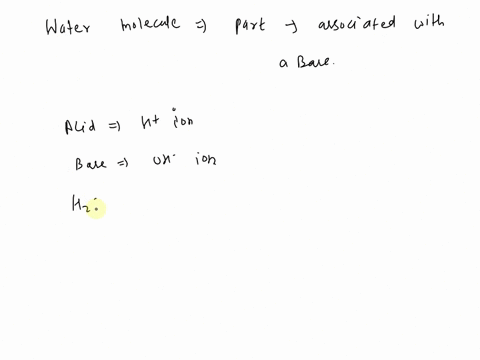 Water molecule => part → associated with
a Base.
Acid => H+ ion
Base => OH- ion
H2